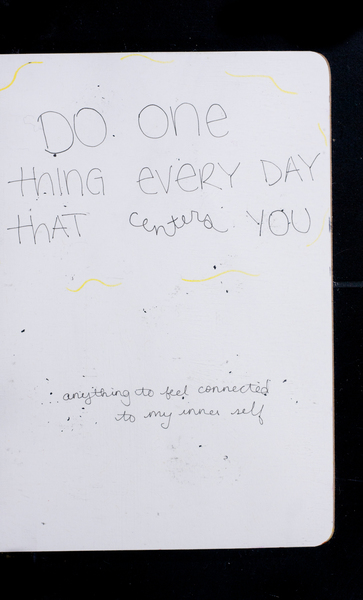 DO ONE
thING EVERY DAY
thAT centers YOU
anything to feel connected
to my inner self